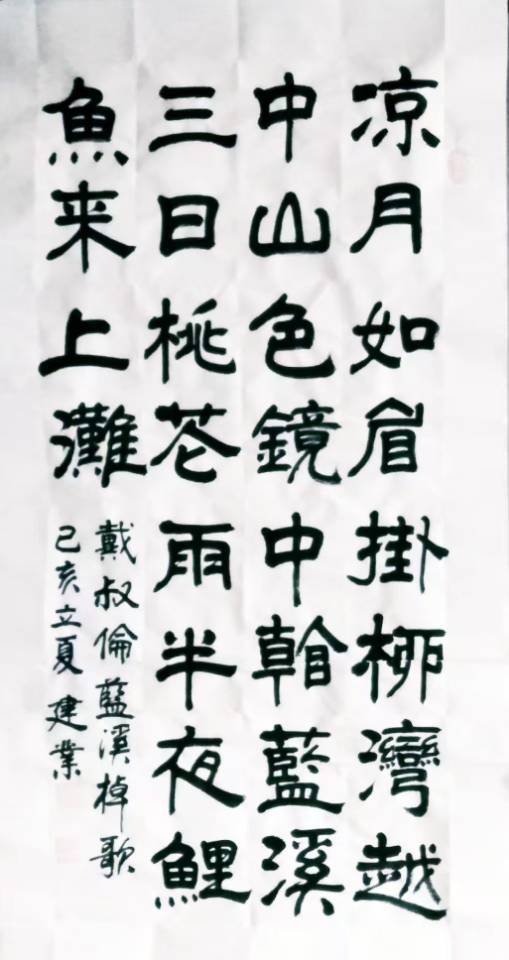 凉月如眉掛柳灣越
中山色鏡中看藍溪
三日桃花雨半夜鯉
魚来上灘
戴叔倫藍溪棹歌
己亥立夏 建業